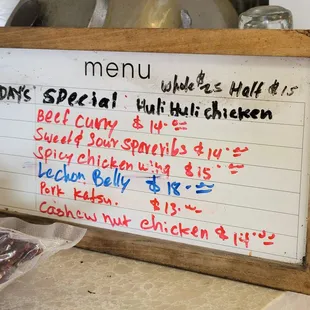 menu
whole $25 Half $15
DAY'S special: Huli Huli chicken
Beef curry $14.00
Sweet & Sour spareribs $14.00
Spicy chicken wing $15.00
Lechon Belly $18.00
Pork Katsu. $13.00
Cashew nut chicken $14.00